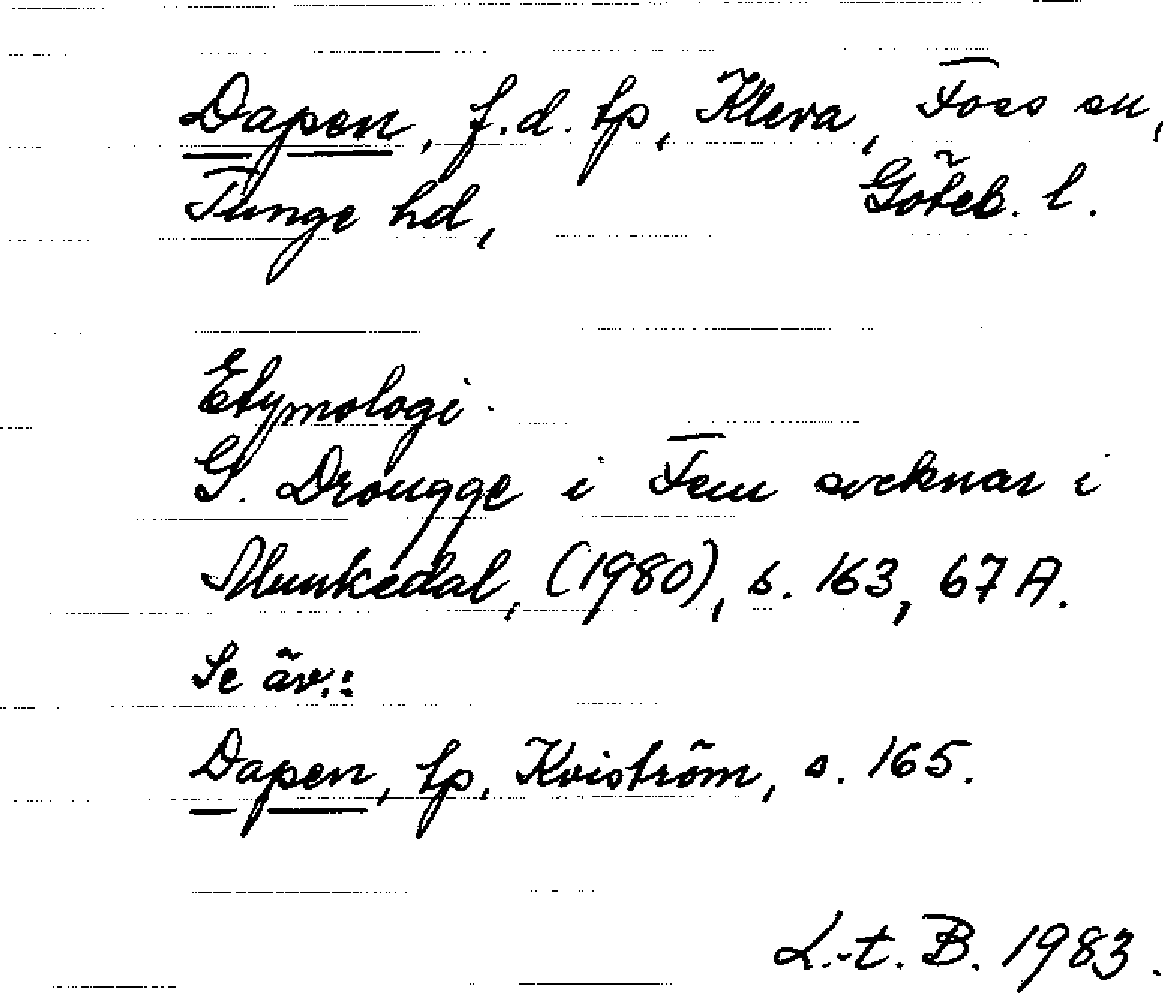 Dapen, f.d. tp, Kleva, Foss sn,
Tunge hd, Göteb. l.
Etymologi.
G. Drougge i Fem socknar i
Munkedal, (1980), s. 163, 67 A.
Se äv.:
Dapen, tp, Kviström, s. 165.
L.-t. B. 1983.